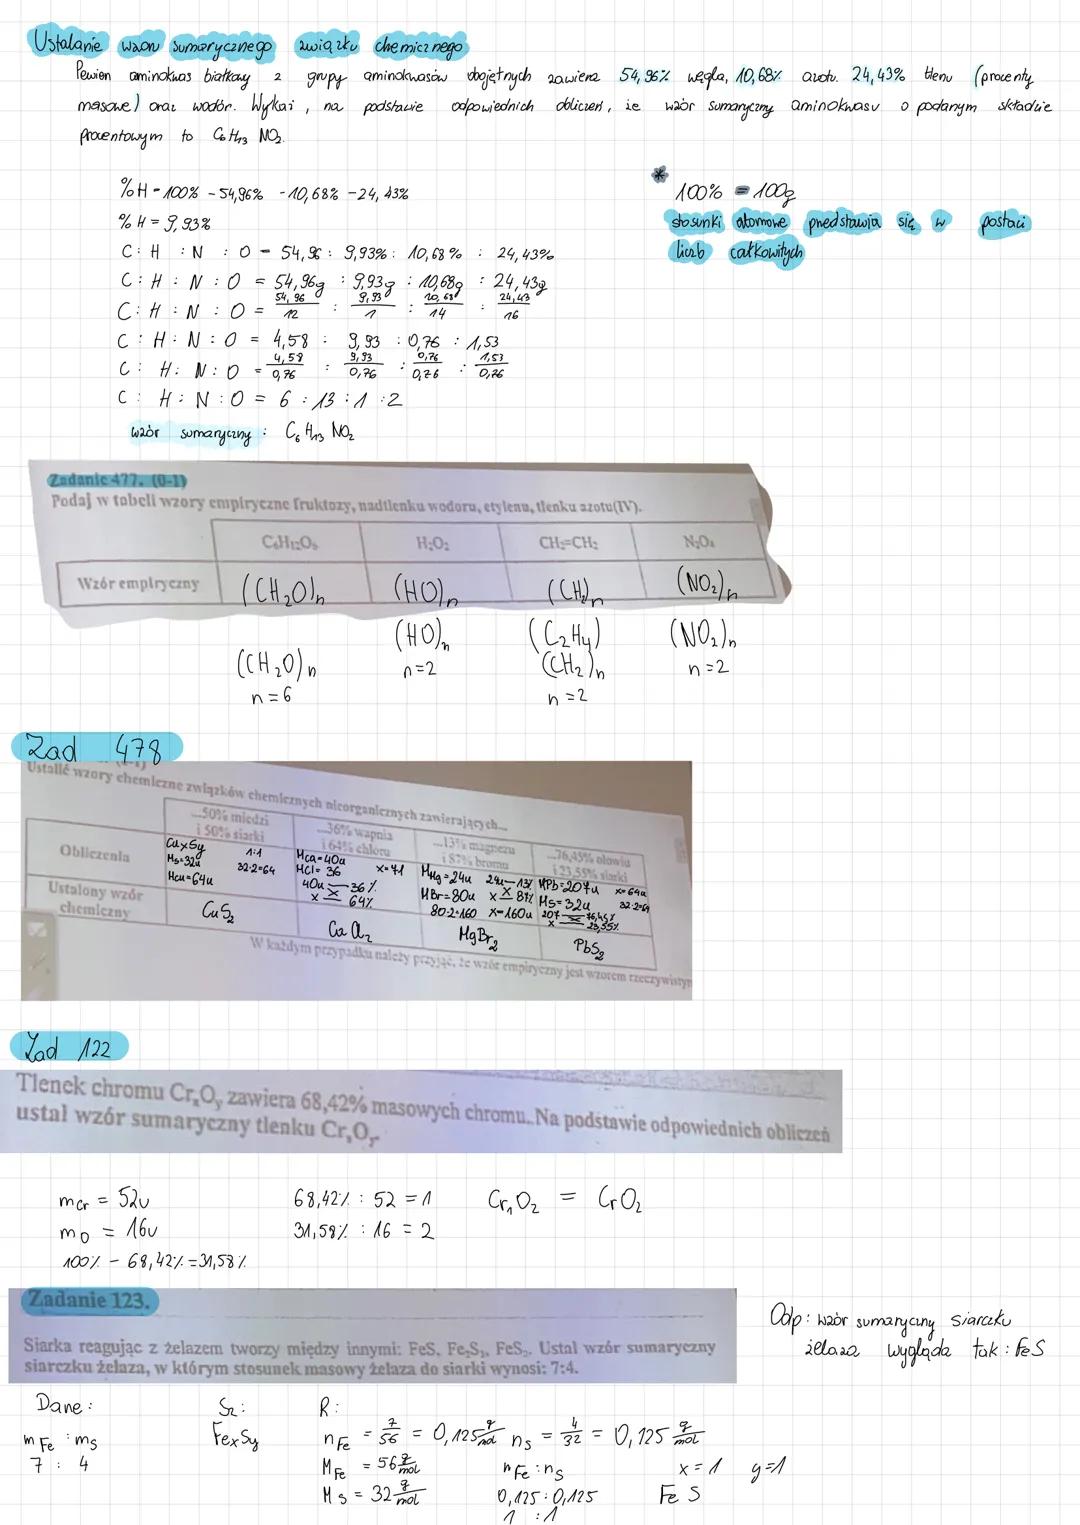 Ustalanie wzoru sumarycznego związku chemicznego
Pewien aminokwas białkowy z grupy aminokwasów obojętnych zawiera 54,96% węgla, 10,68% azotu, 24,43% tlenu (procenty
masowe) oraz wodór. Wykaż, na podstawie odpowiednich obliczeń, że wzór sumaryczny aminokwasu o podanym składzie
procentowym to C6H13NO2.
%H = 100% - 54,96% - 10,68% - 24,43%
%H = 9,93%
C : H : N : O = 54,96 : 9,93% : 10,68% : 24,43%
C : H : N : O = 54,96g : 9,93g : 10,68g : 24,43g
C : H : N : O = 54,96/12 : 9,93/1 : 10,68/14 : 24,43/16
C : H : N : O = 4,58 : 9,93 : 0,76 : 1,53
C : H : N : O = 4,58/0,76 : 9,93/0,76 : 0,76/0,76 : 1,53/0,76
C : H : N : O = 6 : 13 : 1 : 2
wzór sumaryczny : C6H13NO2
*
100% = 100g
stosunki atomowe przedstawia się w postaci
liczb całkowitych
Zadanie 477. (0-1)
Podaj w tabeli wzory empiryczne fruktozy, nadtlenku wodoru, etylenu, tlenku azotu(IV).
C6H12O6 H2O2 CH2=CH2 N2O4
Wzór empiryczny (CH2O)n (HO)n (CH2)n (NO2)n
(HO)n (C2H4) (NO2)n
(CH2O)n n=2 (CH2)n n=2
n=6 n=2
Zad 478
Ustalić wzory chemiczne związków chemicznych nieorganicznych zawierających...
...50% miedzi i 50% siarki
...36% wapnia i 64% chloru
...13% magnezu i 87% bromu
...76,45% ołowiu i 23,55% siarki
Obliczenia
CuxSy
MS=32u 1:1
MCu=64u 32·2=64
MCa=40u
MCl=36 x=71
40u – 36%
x – 64%
MMg=24u 24u–13%
MBr=80u x – 87%
80·2=160 x=160u
MPb=207u x=64u
MS=32u 32·2=64
207 – 76,45%
x – 23,55%
Ustalony wzór chemiczny
CuS2 CaCl2 MgBr2 PbS2
W każdym przypadku należy przyjąć, że wzór empiryczny jest wzorem rzeczywistym
Zad 122
Tlenek chromu CrxOy zawiera 68,42% masowych chromu. Na podstawie odpowiednich obliczeń
ustal wzór sumaryczny tlenku CrxOy.
mCr = 52u 68,42% : 52 = 1 Cr1O2 = CrO2
mO = 16u 31,58% : 16 = 2
100% - 68,42% = 31,58%
Zadanie 123.
Siarka reagując z żelazem tworzy między innymi: FeS, Fe2S3, FeS2. Ustal wzór sumaryczny
siarczku żelaza, w którym stosunek masowy żelaza do siarki wynosi: 7:4.
Odp: wzór sumaryczny siarczku
żelaza wygląda tak : FeS
Dane: Sz: R:
mFe : mS FexSy nFe = 7/56 = 0,125 g/mol nS = 4/32 = 0,125 g/mol
7 : 4 MFe = 56 g/mol nFe : nS x=1 y=1
MS = 32 g/mol 0,125 : 0,125 FeS
1 : 1